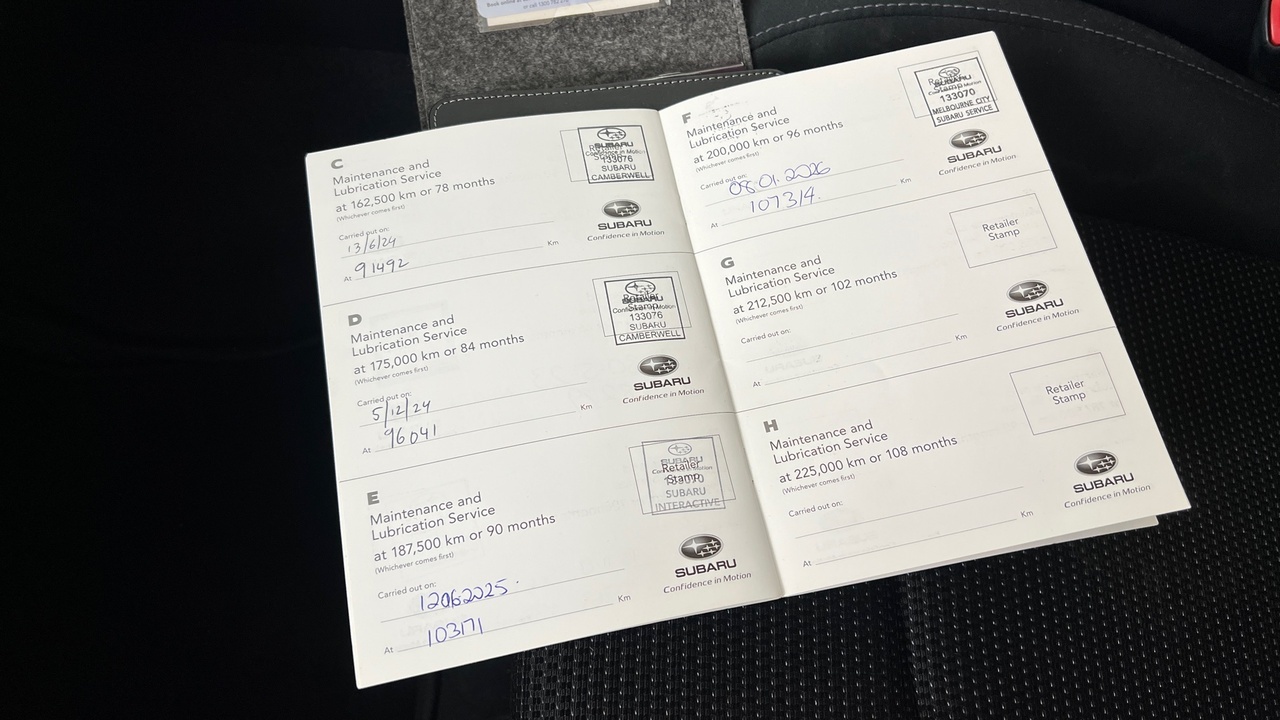 Book online at
or call 1300 782 21
C
Maintenance and
Lubrication Service
at 162,500 km or 78 months
(Whichever comes first)
Carried out on:
13/6/24
Km
At 91492
Retailer
SUBARU
Confidence in Motion
133076
SUBARU
CAMBERWELL
SUBARU
Confidence in Motion
D
Maintenance and
Lubrication Service
at 175,000 km or 84 months
(Whichever comes first)
Carried out on:
5/12/24
Km
At 96041
Retailer
Stamp
SUBARU
Confidence in Motion
133076
SUBARU
CAMBERWELL
SUBARU
Confidence in Motion
E
Maintenance and
Lubrication Service
at 187,500 km or 90 months
(Whichever comes first)
Carried out on:
12062025
Km
At 103171
Retailer
Stamp
SUBARU
133070
SUBARU
INTERACTIVE
SUBARU
Confidence in Motion
F
Maintenance and
Lubrication Service
at 200,000 km or 96 months
(Whichever comes first)
Carried out on:
08.01.2026
Km
At 107314.
Retailer
Stamp
SUBARU
133070
MELBOURNE CITY
SUBARU SERVICE
SUBARU
Confidence in Motion
G
Maintenance and
Lubrication Service
at 212,500 km or 102 months
(Whichever comes first)
Carried out on:
Km
At
Retailer
Stamp
SUBARU
Confidence in Motion
H
Maintenance and
Lubrication Service
at 225,000 km or 108 months
(Whichever comes first)
Carried out on:
Km
At
Retailer
Stamp
SUBARU
Confidence in Motion